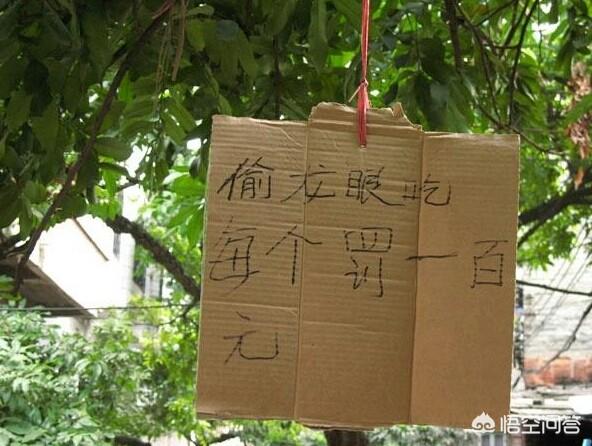 偷龙眼吃
每个罚一百
元
悟空问答